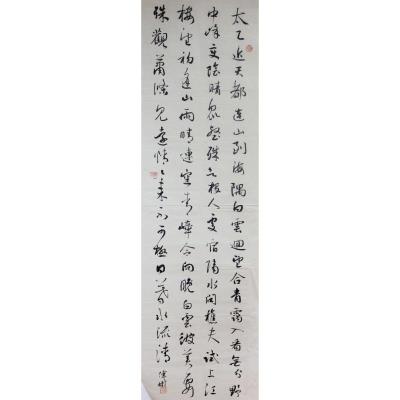 太乙近天都連山到海隅白雲迴望合青靄入看無分野
中峰變陰晴眾壑殊欲投人處宿隔水問樵夫試上江
樓望初逢山雨晴連空青嶂合向晚白雲彼美要
殊觀蕭條見遠情〻來不可極日暮水流清